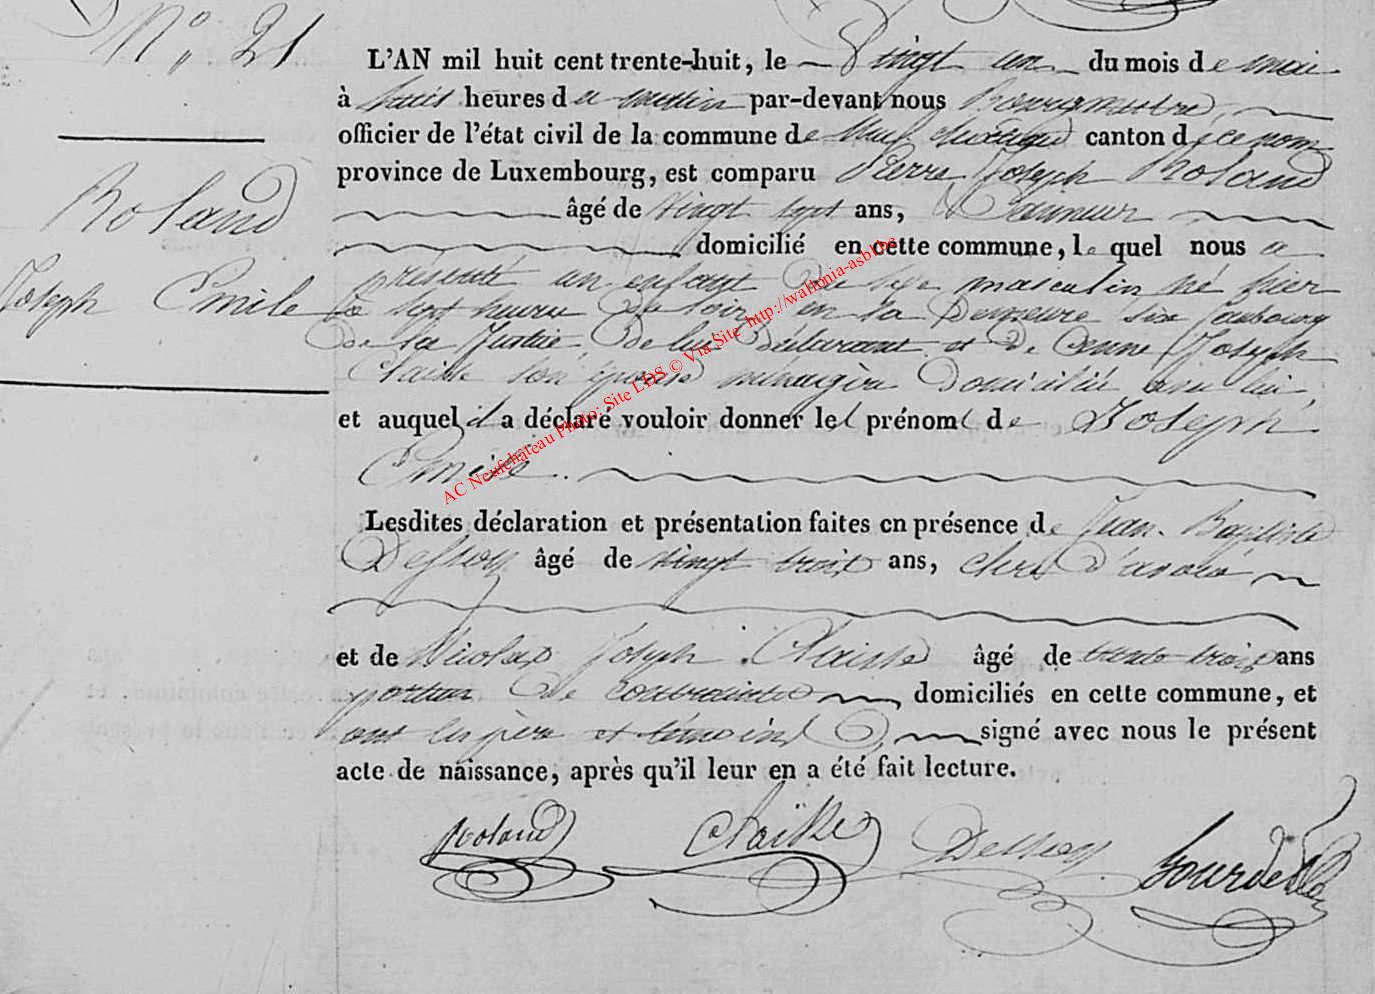 N° 21
L'AN mil huit cent trente-huit, le Vingt un du mois de mai
à huit heures du matin par-devant nous Bourgmestre
officier de l'état civil de la commune de Neufchateau canton de ce nom
province de Luxembourg, est comparu Pierre Joseph Roland
âgé de vingt sept ans, Tanneur
domicilié en cette commune, le quel nous a
présenté un enfant de sexe masculin né hier
à sept heures du soir en sa Demeure sise faubourg
de la Justice, de lui déclarant et de Anne Joseph
Claisse son épouse ménagère Domiciliée avec lui,
et auquel il a déclaré vouloir donner les prénoms de Joseph
Emile.
Lesdites déclaration et présentation faites en présence de Jean-Baptiste
Dessoy âgé de vingt trois ans, clerc d'avoué
et de Nicolas Joseph Claisse âgé de trente trois ans
porteur de contraintes domiciliés en cette commune, et
ont les père et témoins signé avec nous le présent
acte de naissance, après qu'il leur en a été fait lecture.
Roland
Joseph Emile
Roland Claisse Dessoy
AC Neufchâteau Photo: Site LDS © Via Site http://wallonia-asbl.be